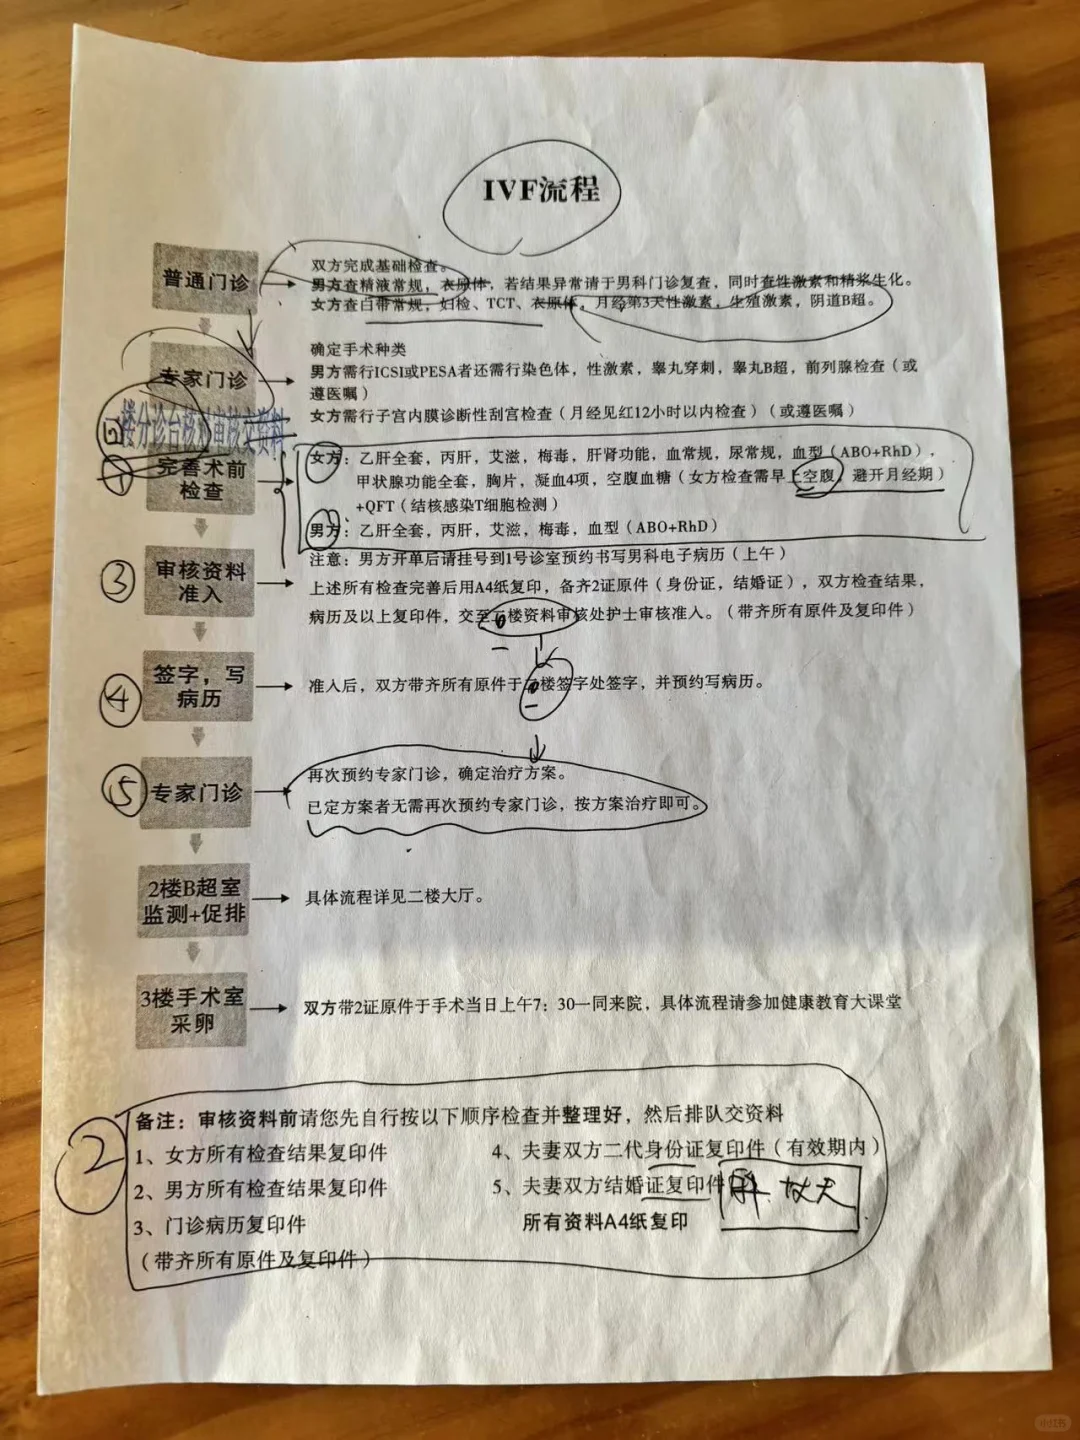 IVF流程
普通门诊
双方完成基础检查。
男方查精液常规，衣原体，若结果异常请于男科门诊复查，同时查性激素和精浆生化。
女方查白带常规，妇检、TCT、衣原体，月经第3天性激素，生殖激素，阴道B超。
专家门诊
确定手术种类
男方需行ICSI或PESA者还需行染色体，性激素，睾丸穿刺，睾丸B超，前列腺检查（或
遵医嘱）
女方需行子宫内膜诊断性刮宫检查（月经见红12小时以内检查）（或遵医嘱）
楼分诊台核对审核交资料
①
完善术前
检查
女方：乙肝全套，丙肝，艾滋，梅毒，肝肾功能，血常规，尿常规，血型（ABO+RhD），
甲状腺功能全套，胸片，凝血4项，空腹血糖（女方检查需早上空腹，避开月经期）
+QFT（结核感染T细胞检测）
男方：乙肝全套，丙肝，艾滋，梅毒，血型（ABO+RhD）
注意：男方开单后请挂号到1号诊室预约书写男科电子病历（上午）
③
审核资料
准入
上述所有检查完善后用A4纸复印，备齐2证原件（身份证，结婚证），双方检查结果，
病历及以上复印件，交至楼资料审核处护士审核准入。（带齐所有原件及复印件）
④
签字，写
病历
准入后，双方带齐所有原件于楼签字处签字，并预约写病历。
⑤
专家门诊
再次预约专家门诊，确定治疗方案。
已定方案者无需再次预约专家门诊，按方案治疗即可。
2楼B超室
监测+促排
具体流程详见二楼大厅。
3楼手术室
采卵
双方带2证原件于手术当日上午7：30一同来院，具体流程请参加健康教育大课堂
②
备注：审核资料前请您先自行按以下顺序检查并整理好，然后排队交资料
1、女方所有检查结果复印件
2、男方所有检查结果复印件
3、门诊病历复印件
（带齐所有原件及复印件）
4、夫妻双方二代身份证复印件（有效期内）
5、夫妻双方结婚证复印件
所有资料A4纸复印